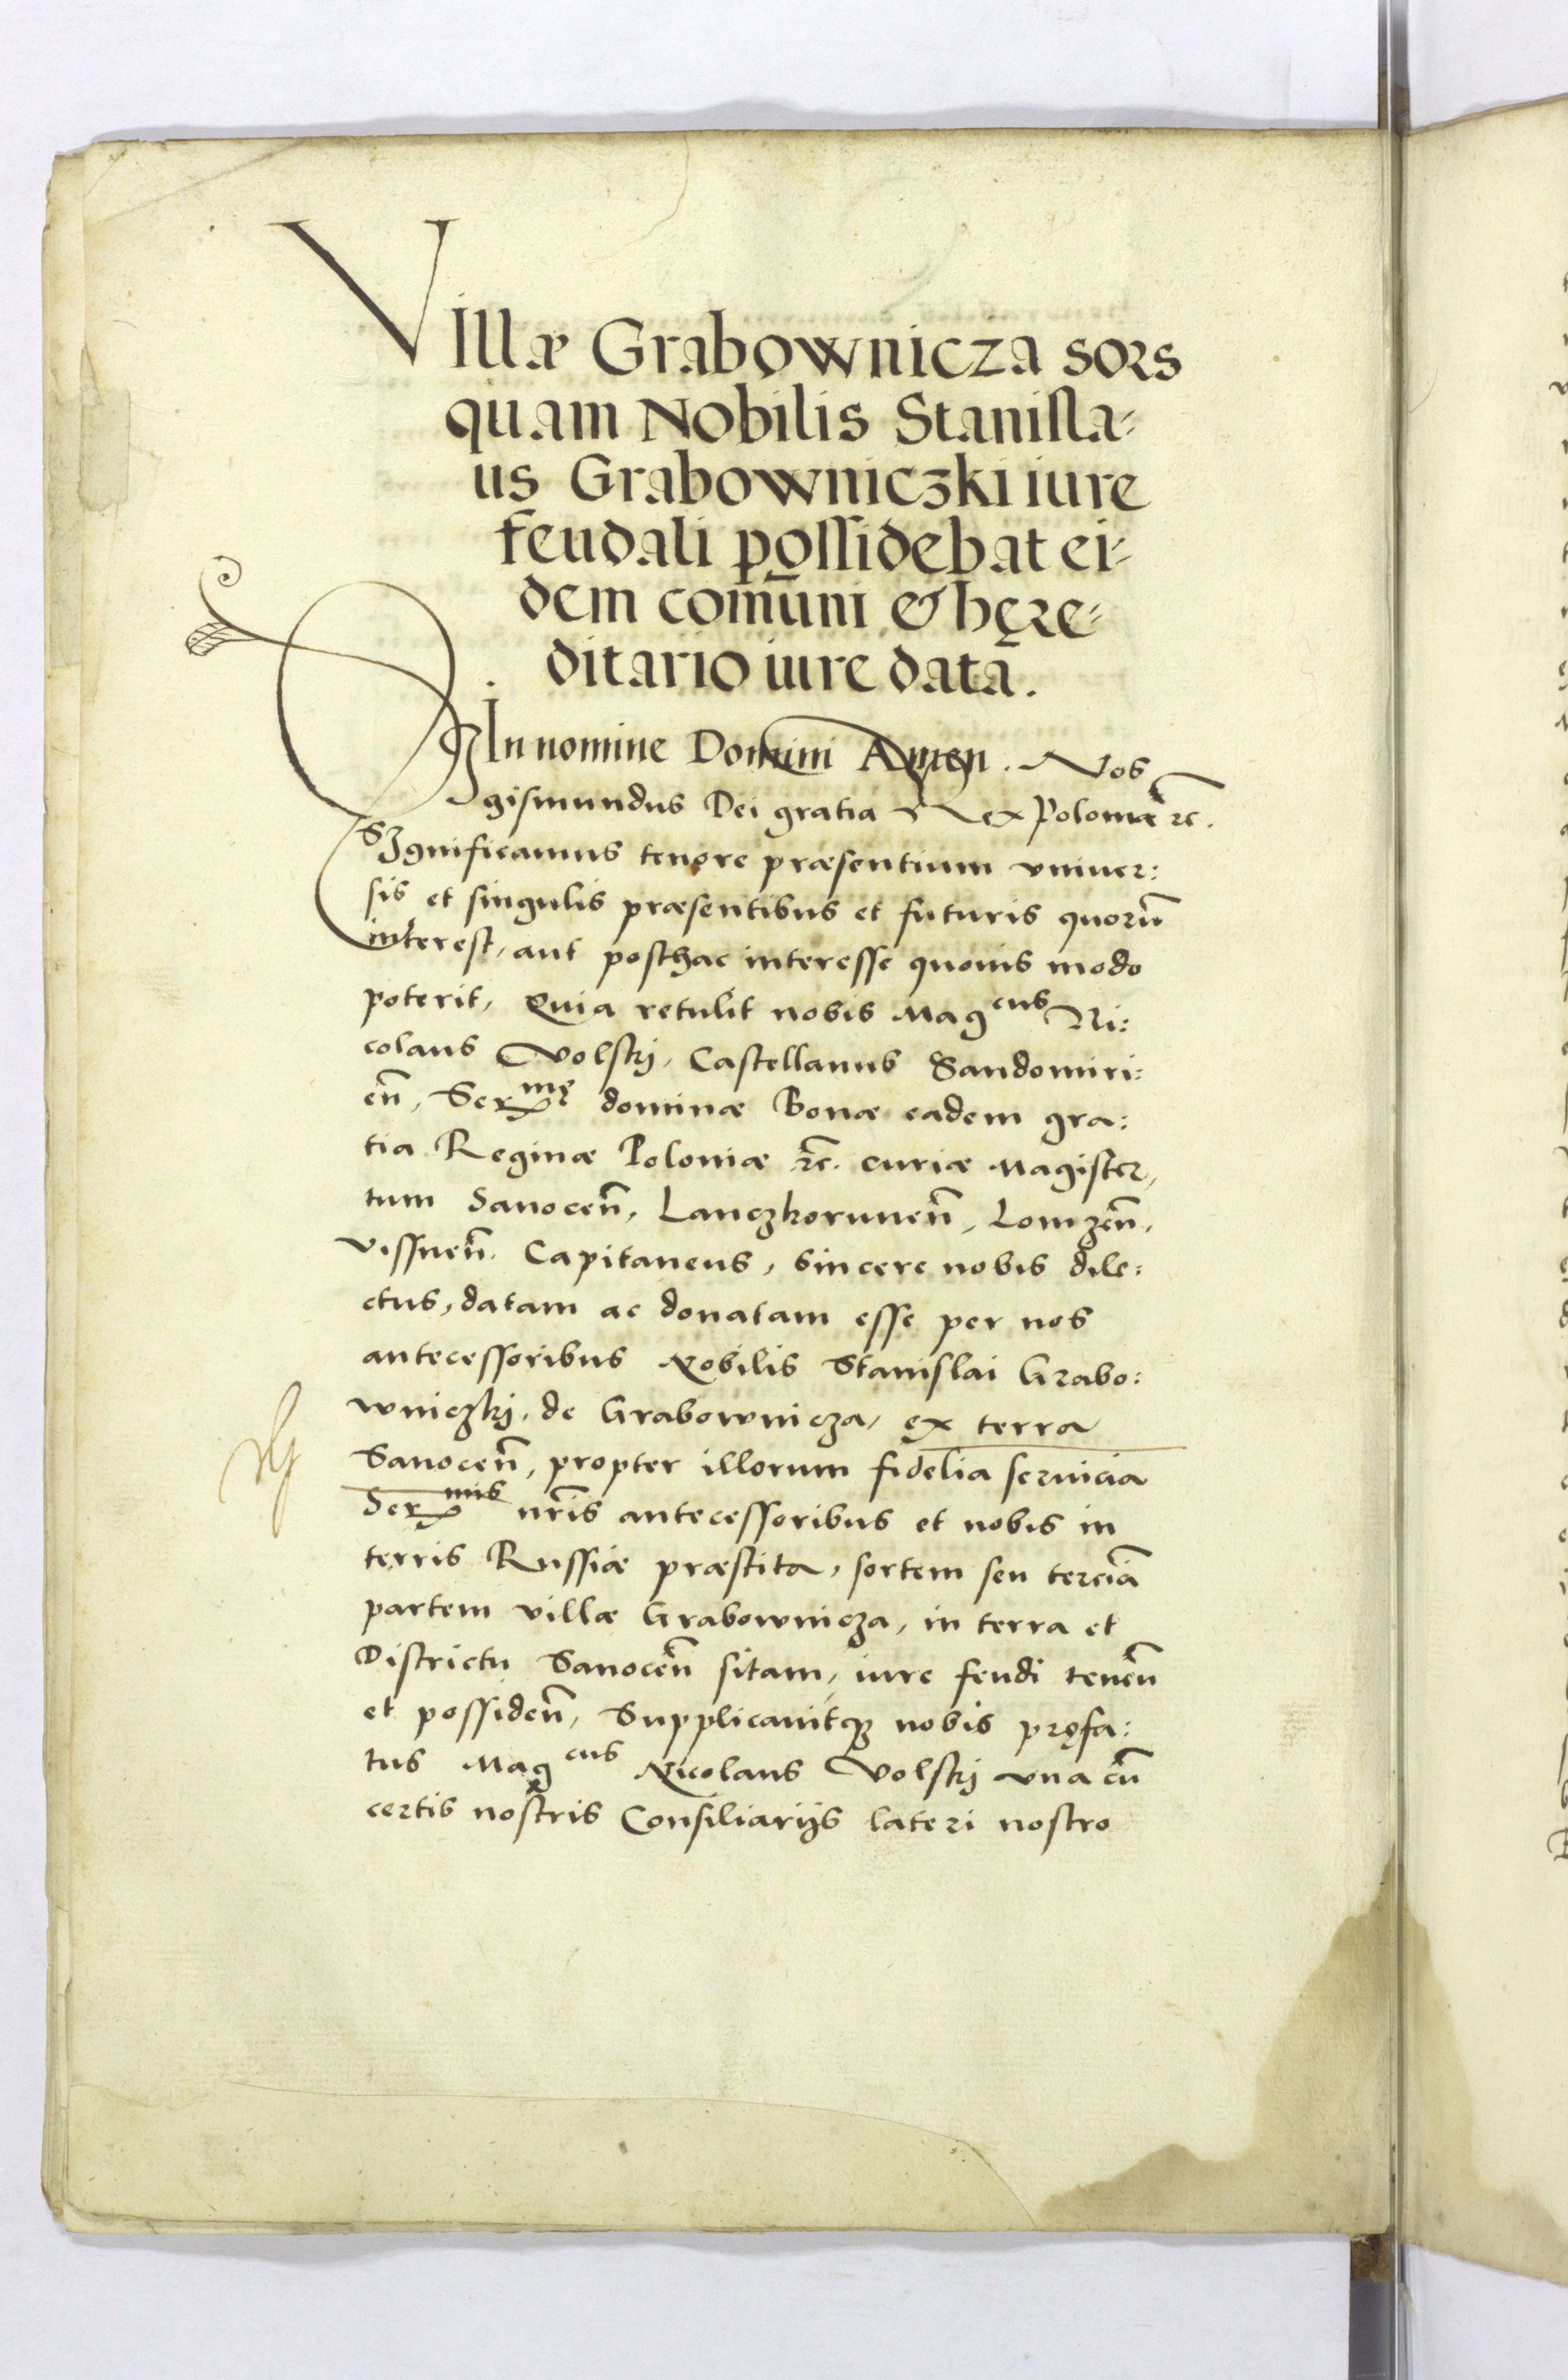 VIllæ Grabownicza sors
quam Nobilis Stanisla-
us Grabowniczki iure
feudali possidebat ei-
dem com̄uni & hęre-
ditario iure data.
In nomine Domini Amen. Nos
Sigismundus Dei gratia Rex Poloniæ &c.
SIgnificamus tenore præsentium vniuer:
sis et singulis præsentibus et futuris quorū
interest, aut posthac interesse quouis modo
poterit, Quia retulit nobis Mag^cus Ni:
colaus Wolskj, Castellanus Sandomiri:
eñ, Ser^mę dominæ Bonæ eadem gra:
tia Reginæ Poloniæ &c. curiæ Magister,
tum Sanoceñ, Lanczkoruneñ, Lomzeñ,
vissneñ Capitaneus, sincere nobis dile:
ctus, datam ac donatam esse per nos
antecessoribus Nobilis Stanislai Grabo:
wniczkj, de Grabownicza, ex terra
Sanoceñ, propter illorum fidelia seruicia
Ser^mis nr̄is antecessoribus et nobis in
terris Russiæ præstita, sortem seu terciā
partem villæ Grabownicza, in terra et
Districtu Sanoceñ sitam, iure feudi teneñ
et possideñ, Supplicauitq; nobis pręfa:
tus Mag^cus Nicolaus Wolskj vna cū
certis nostris Consiliarijs lateri nostro